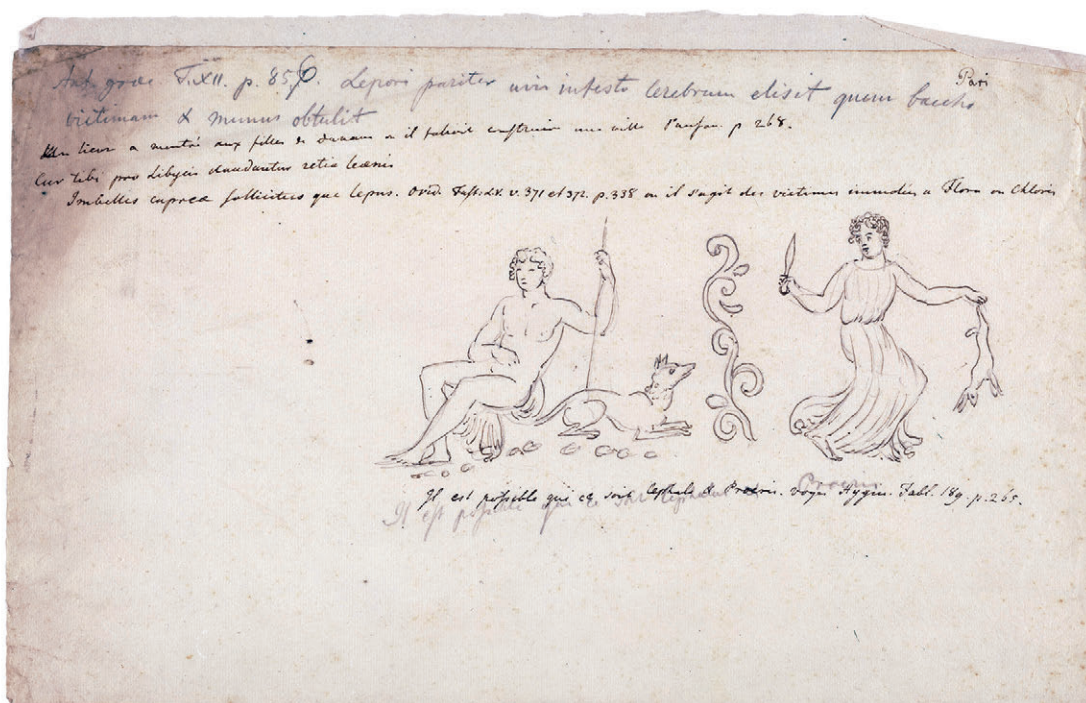 Pari
Ant. grec. T. XII. p. 85, 6. Lepori pariter uvis infesto cerebrum elisit quem baccho
victimam & munus obtulit
Un lievre a montré aux filles de où il falloit construire une ville Pausan. p 268.
Cur tibi pro Libycis clauduntur retia leænis
Imbelles capreæ sollicitus que lepus. Ovid. Fast. L.V. v. 371 et 372. p. 338 ou il s'agit des victimes immolées a Flora ou Chloris
Il est possible que ce soit Cephale & Procris. voyez Hygin. Fabl. 189. p. 265.
Procris
Il est possible que ce soit Cephale